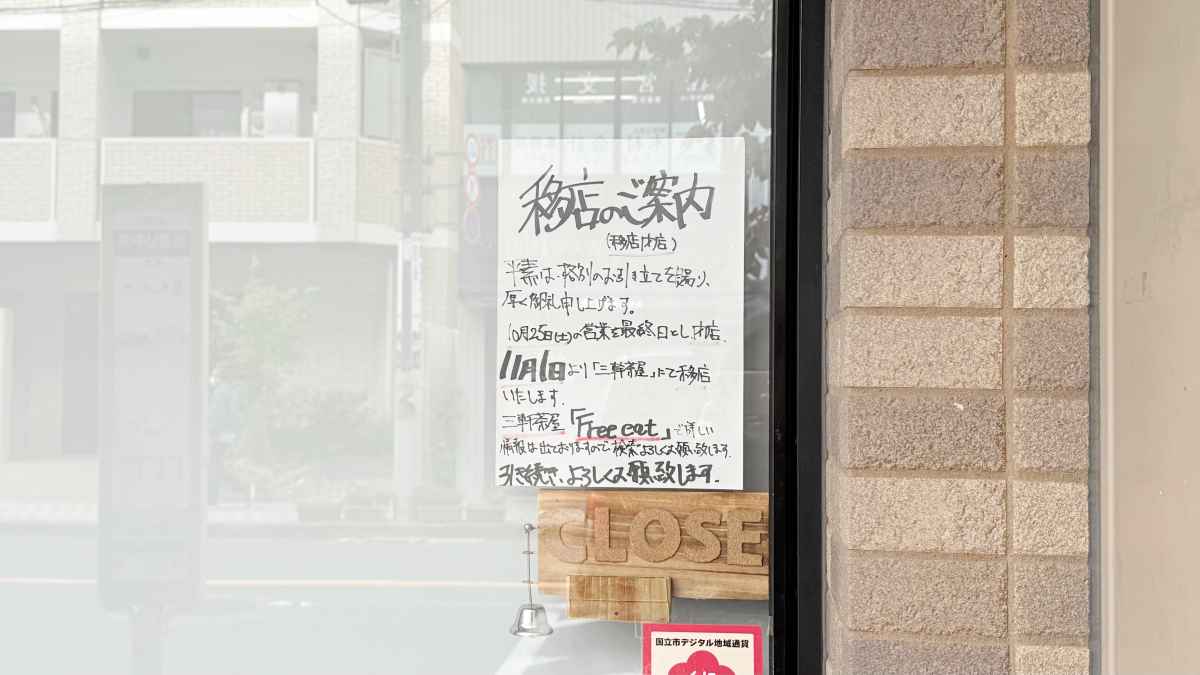 移店のご案内
(移店閉店)
平素は、格別のお引き立てを賜り、
厚く御礼申し上げます。
10月25日(土)の営業を最終日とし、閉店。
11月1日より「三軒茶屋」にて移店
いたします。
三軒茶屋「Free eat」で詳しい
情報は出ておりますので検索よろしくお願い致します。
引き続き、よろしくお願い致します。
CLOSE
国立市デジタル地域通貨